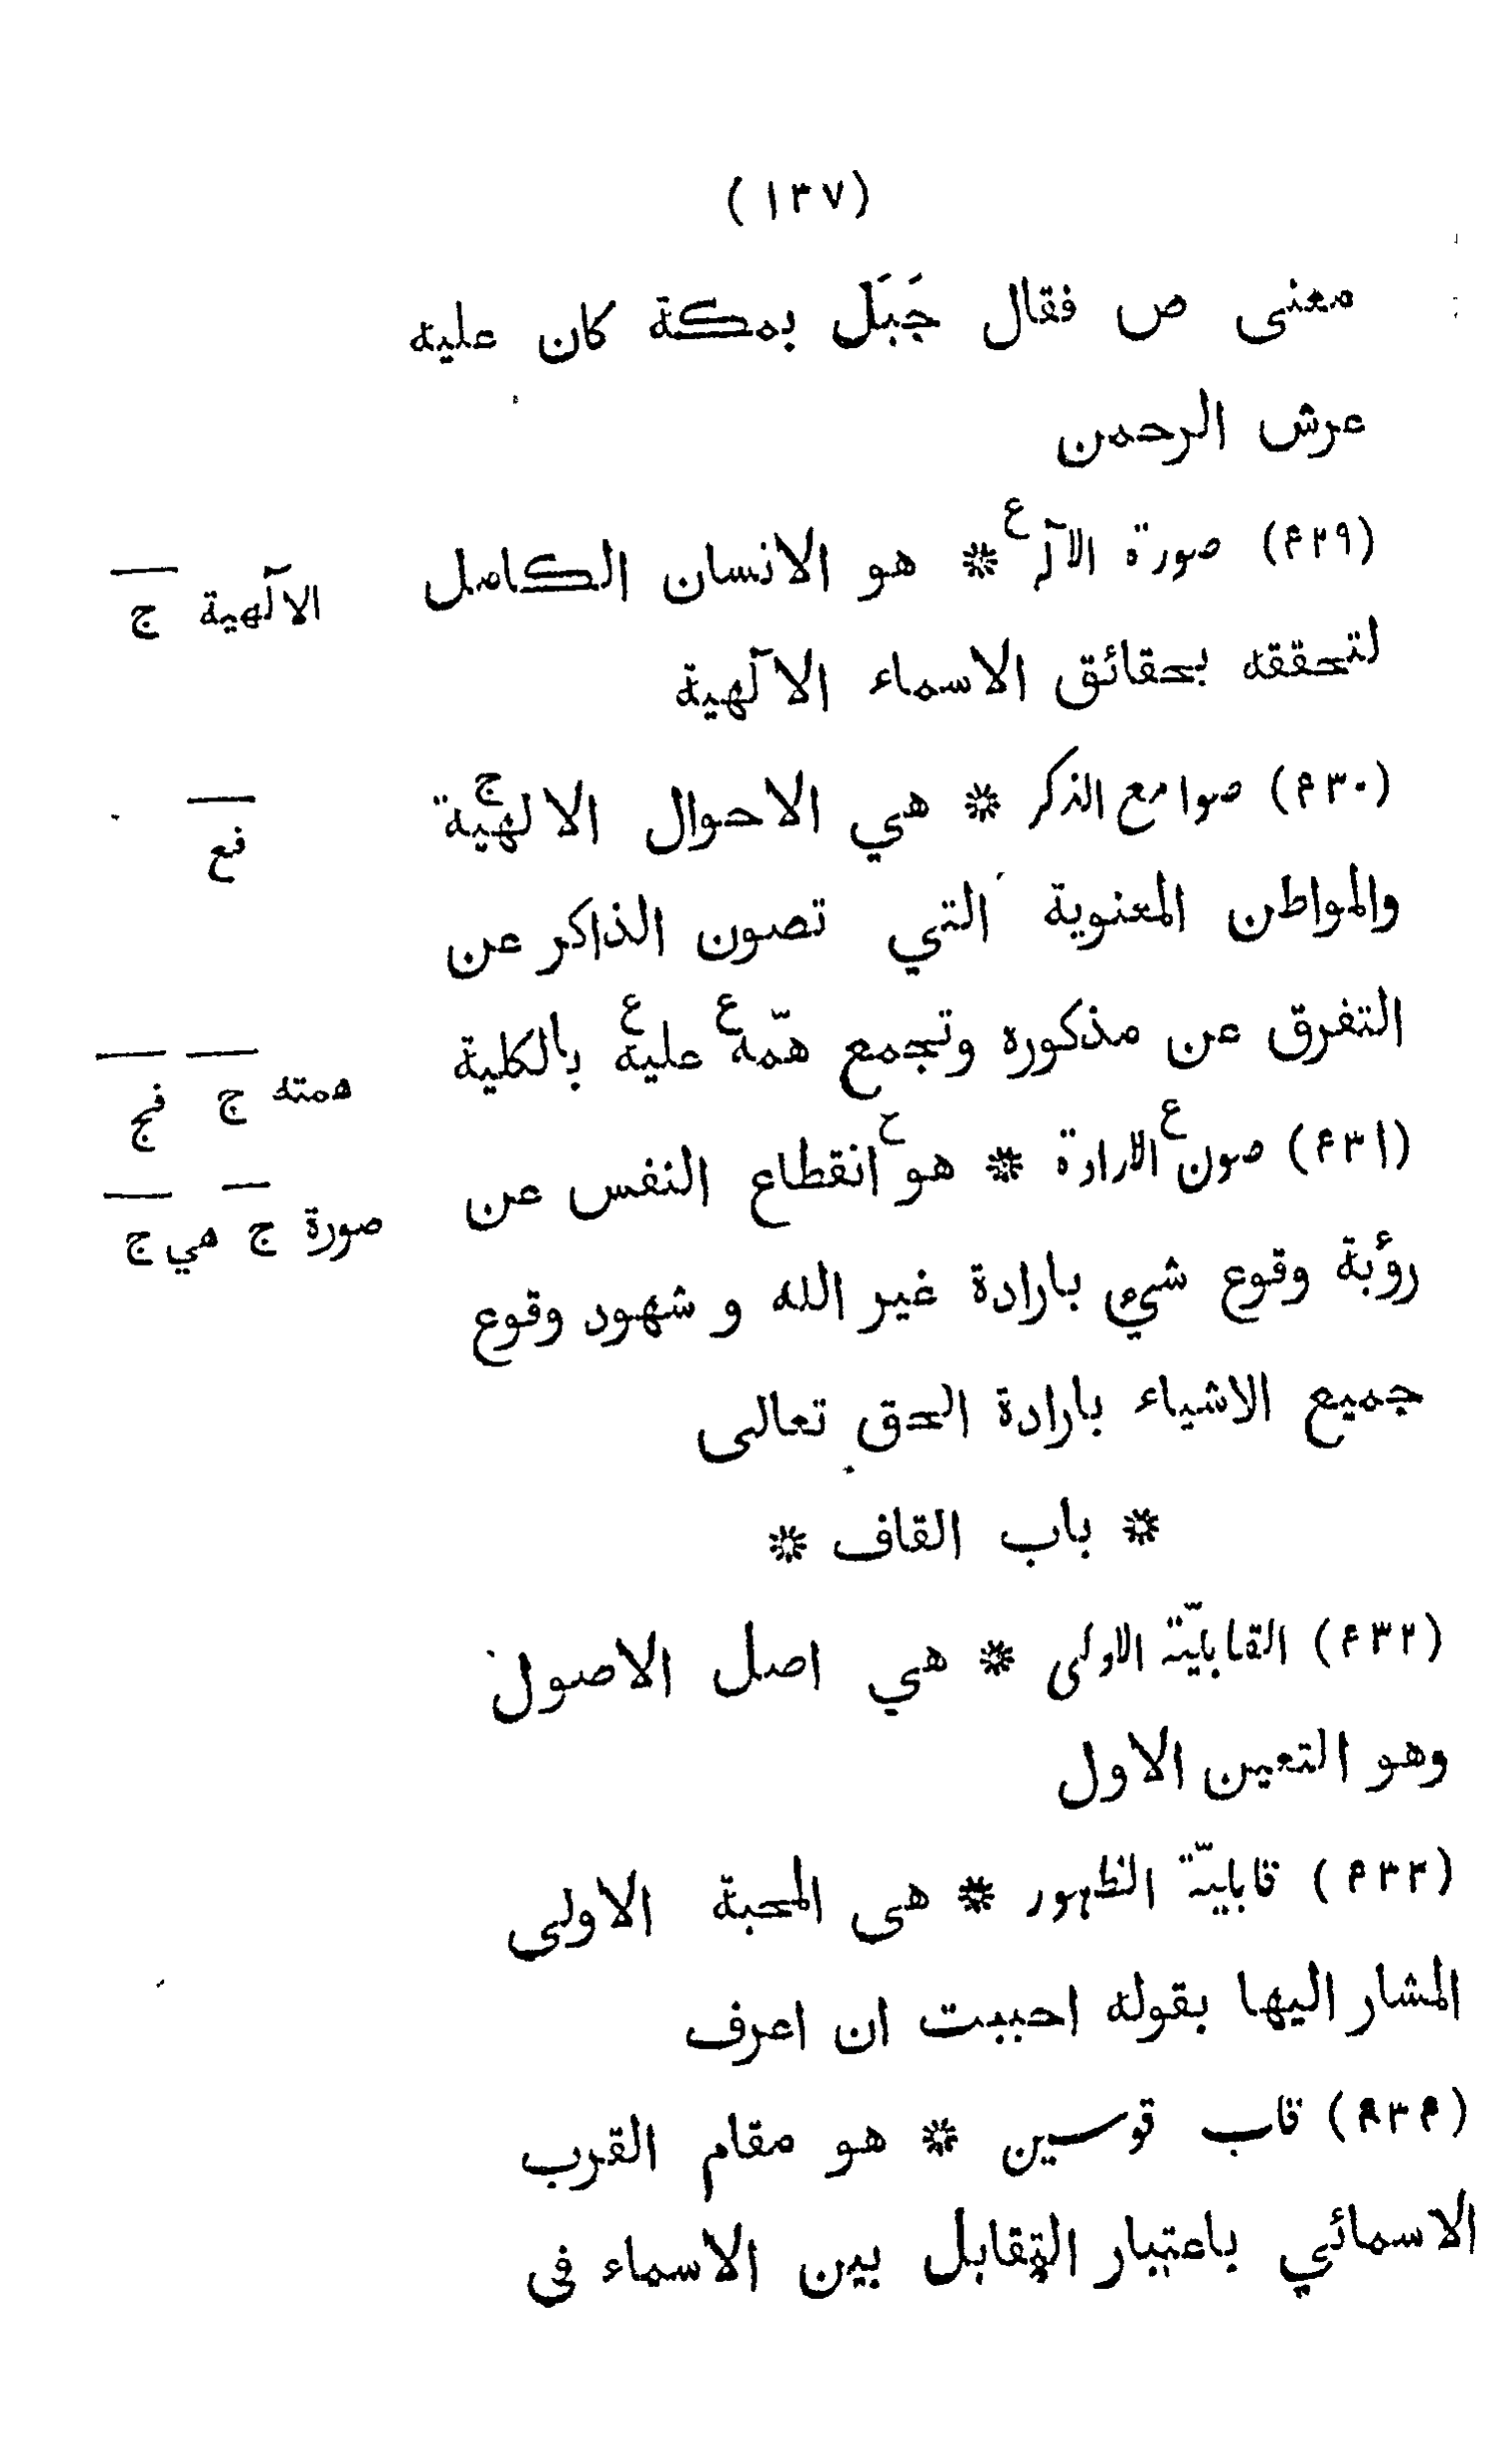 (١٣٧)
معنى ص فقال جَبَل بمكة كان عليه
عرش الرحمن
(٤٢٩) صورة الآله ع * هو الانسان الكامل
الآلهية ج
لتحققه بحقائق الاسماء الآلهية
(٤٣٠) صوامع الذكر * هي الاحوال الالهية ج
فع
والمواطن المعنوية التي تصون الذاكر عن
التفرق عن مذكوره وتجمع همّه ع عليه ع بالكلية
همته ج فج
(٤٣١) صون ع الارادة * هو ح انقطاع النفس عن
صورة ج هي ج
رؤبة وقوع شيء بارادة غير الله و شهود وقوع
جميع الاشياء بارادة الحق تعالى
* باب القاف *
(٤٣٢) القابليّة الاولى * هي اصل الاصول
وهو التعين الاول
(٤٣٣) قابليّة الظهور * هى المحبة الاولى
المشار اليها بقوله احببت ان اعرف
(٤٣٤) قاب قوسين * هو مقام القرب
الاسمائي باعتبار التقابل بين الاسماء فى